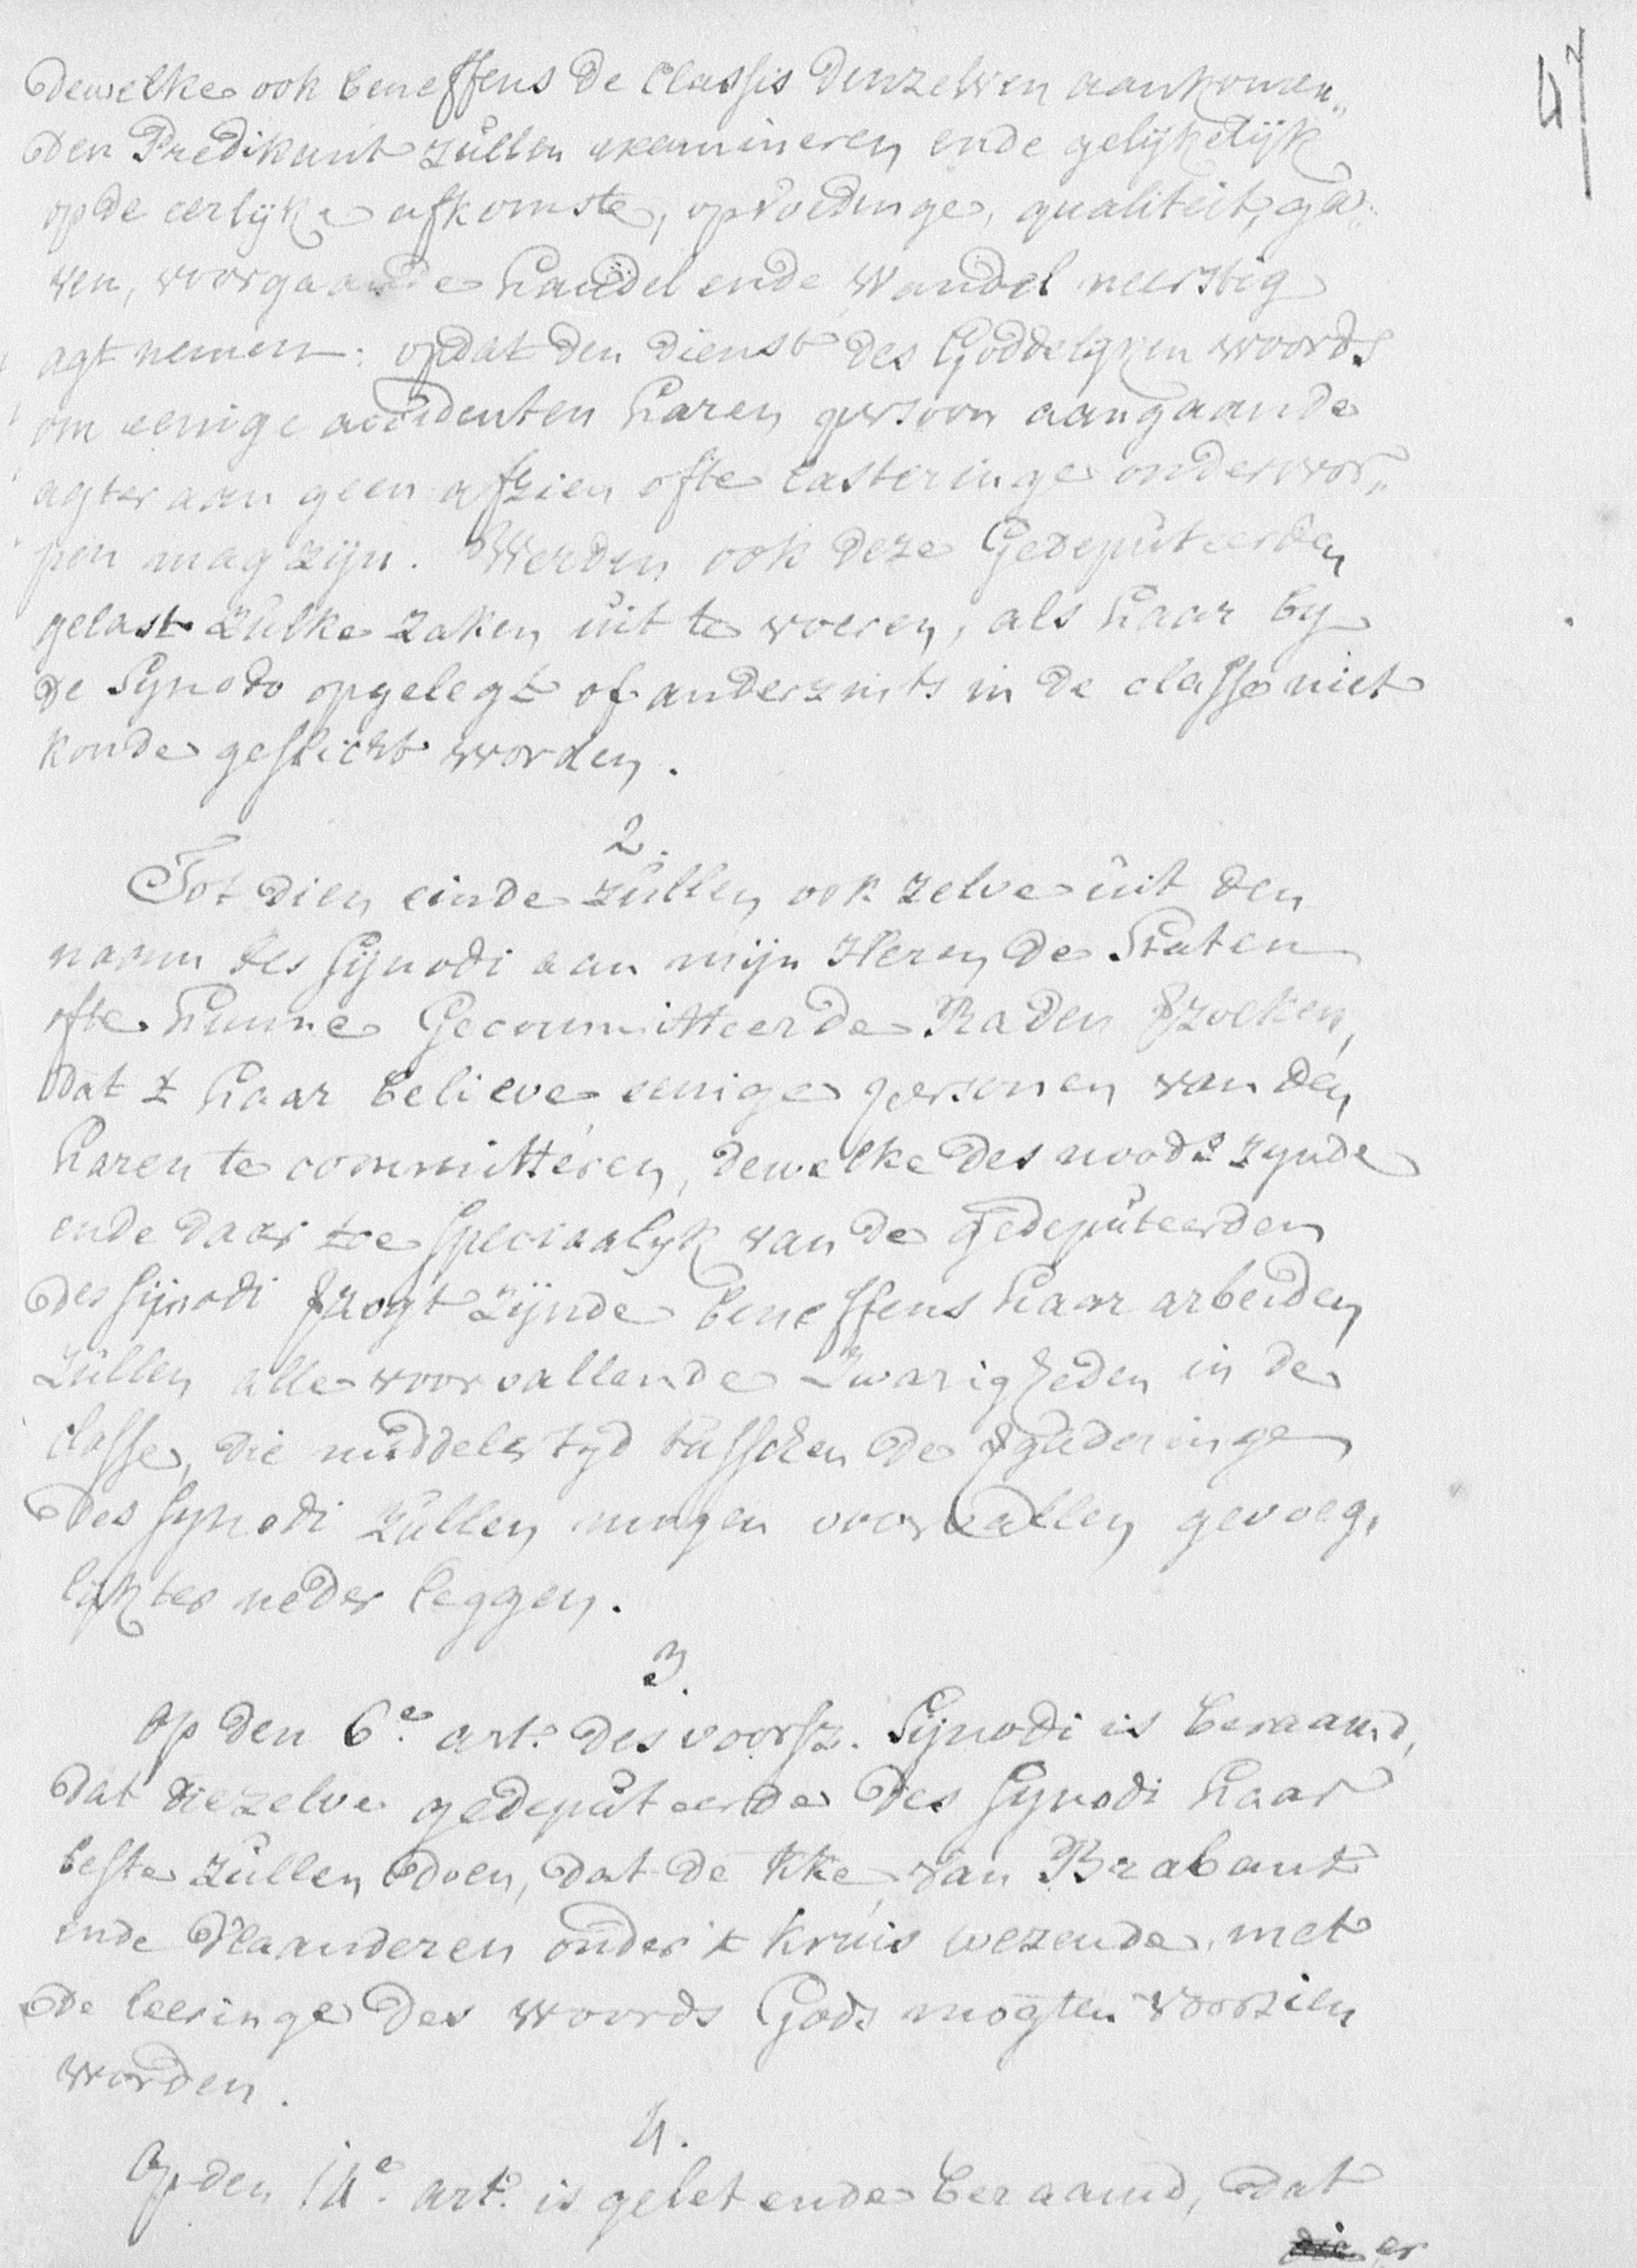 47
dewelke ook beneffens de Classis denzelven aankomen„
den Predikant zullen examineren ende gelijkelijk
op de eerlijke afkomste, opvoedinge, qualiteit, ga„
ven, voorgaande handel ende wandel neerstig
agt nemen: opdat den dienst des Goddelyken woords
om eenige accidenten haren persoon aangaande
agter aan geen afzien ofte lasteringe onderwor„
pen mag zijn. Werden ook deze Gedeputeerden
gelast zulke zaken uit te voeren, als haar by
de Synodo opgelegt of anderzints in de classe niet
konde geslicht worden.
2.
Tot dien einde zullen ook zelve uit den
naam des Synodi aan mijn Heren de Staten
ofte hunne Gecommitteerde Raden zoeken,
dat t haar believe eenige personen van den
haren te committéren, dewelke des noods zynde
ende daar toe speciaalyk van de gedeputeerden
des Synodi zogt zijnde beneffens haar arbeiden
zullen alle voorvallende zwarigheden in de
classe, die middeler tyd tusschen de gaderinge
des Synodi zullen mogen voorvallen gevoeg„
lykter neder leggen.
3.
Op den 6e. art. des voorsz. Synodi is beraamd,
dat diezelve gedeputeerde des Synodi haar
beste zullen doen, dat de kke van Brabant
ende Vlaanderen onder t kruis wezende, met
de leeringe des woords Gods mogten voorzien
worden.
4.
Op den 14e. art. is gelet ende beraamd, dat
er